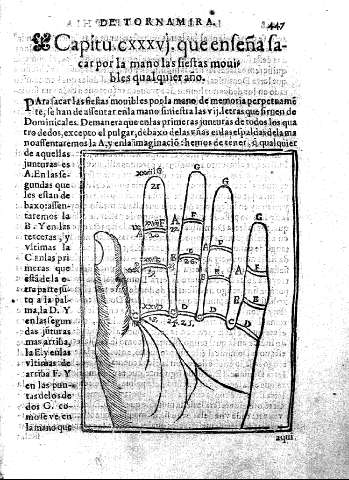 DE TORNAMIRA. 447
Capitu. cxxxvj. que enseña sa-
car por la mano las fiestas moui-
bles qualquier año.
PAra sacar las fiestas mouibles por la mano de memoria perpetuamē
te, se han de assentar en la mano siniestra las vij. letras que siruen de
Dominicales. De manera que en las primeras junturas de todos los qua
tro dedos, excepto el pulgar, debaxo de las vñas en las espaldas de la ma
no assentaremos la A, y en la imaginaciō hemos de tener, q̄ qualquier
de aquellas
junturas es
A. En las se-
gundas que
les estan de
baxo: assen-
taremos la
B. Y en las
terceras, y
vltimas la
C en las pri
meras que
està de la o-
tra parte jū-
to a la pal-
ma, la D. Y
en las segun
das jūturas
mas arriba,
la E, y en las
vltimas de
arriba F. Y
en las pun-
tas de los de
dos G. co-
mo se ve en
la mano que
G G G G
F F F
A A A
E E E
B B
D D D
aqui.